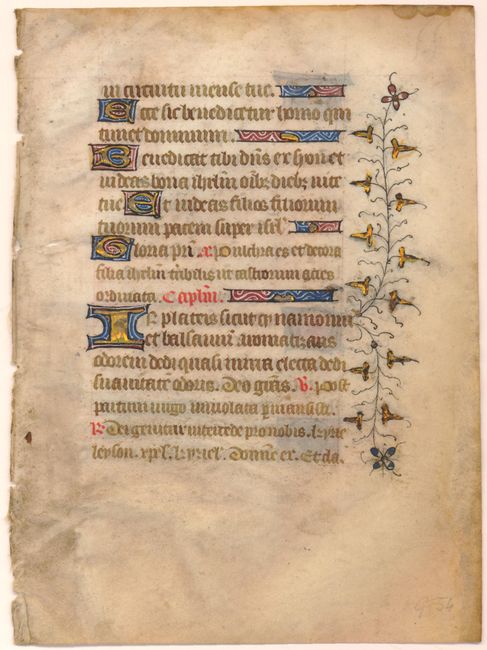 in circuitu mense tue.
Ecce sic benedicetur homo qui
timet dominum.
Benedicat tibi dñs ex syon et
uideas bona ihrlm oĩbz diebz uite
tue Et uideas filios filiorum
tuorum pacem super isrl
Gloria pr̃i. Pulchra es et decora
filia ihrlm tribilis ut castrorum acies
ordinata. Capłm.
In plateis sicut cynamomum
et balsamũ aromatizans
odorem dedi quasi mirra electa dedi
suauitate odoris. Deo grãs. V. Post
partum uirgo inuiolata permansisti.
R Dei genitrix intercede pro nobis. kyrie
leyson. xpel. kyriel. Domine ex. Et cla.